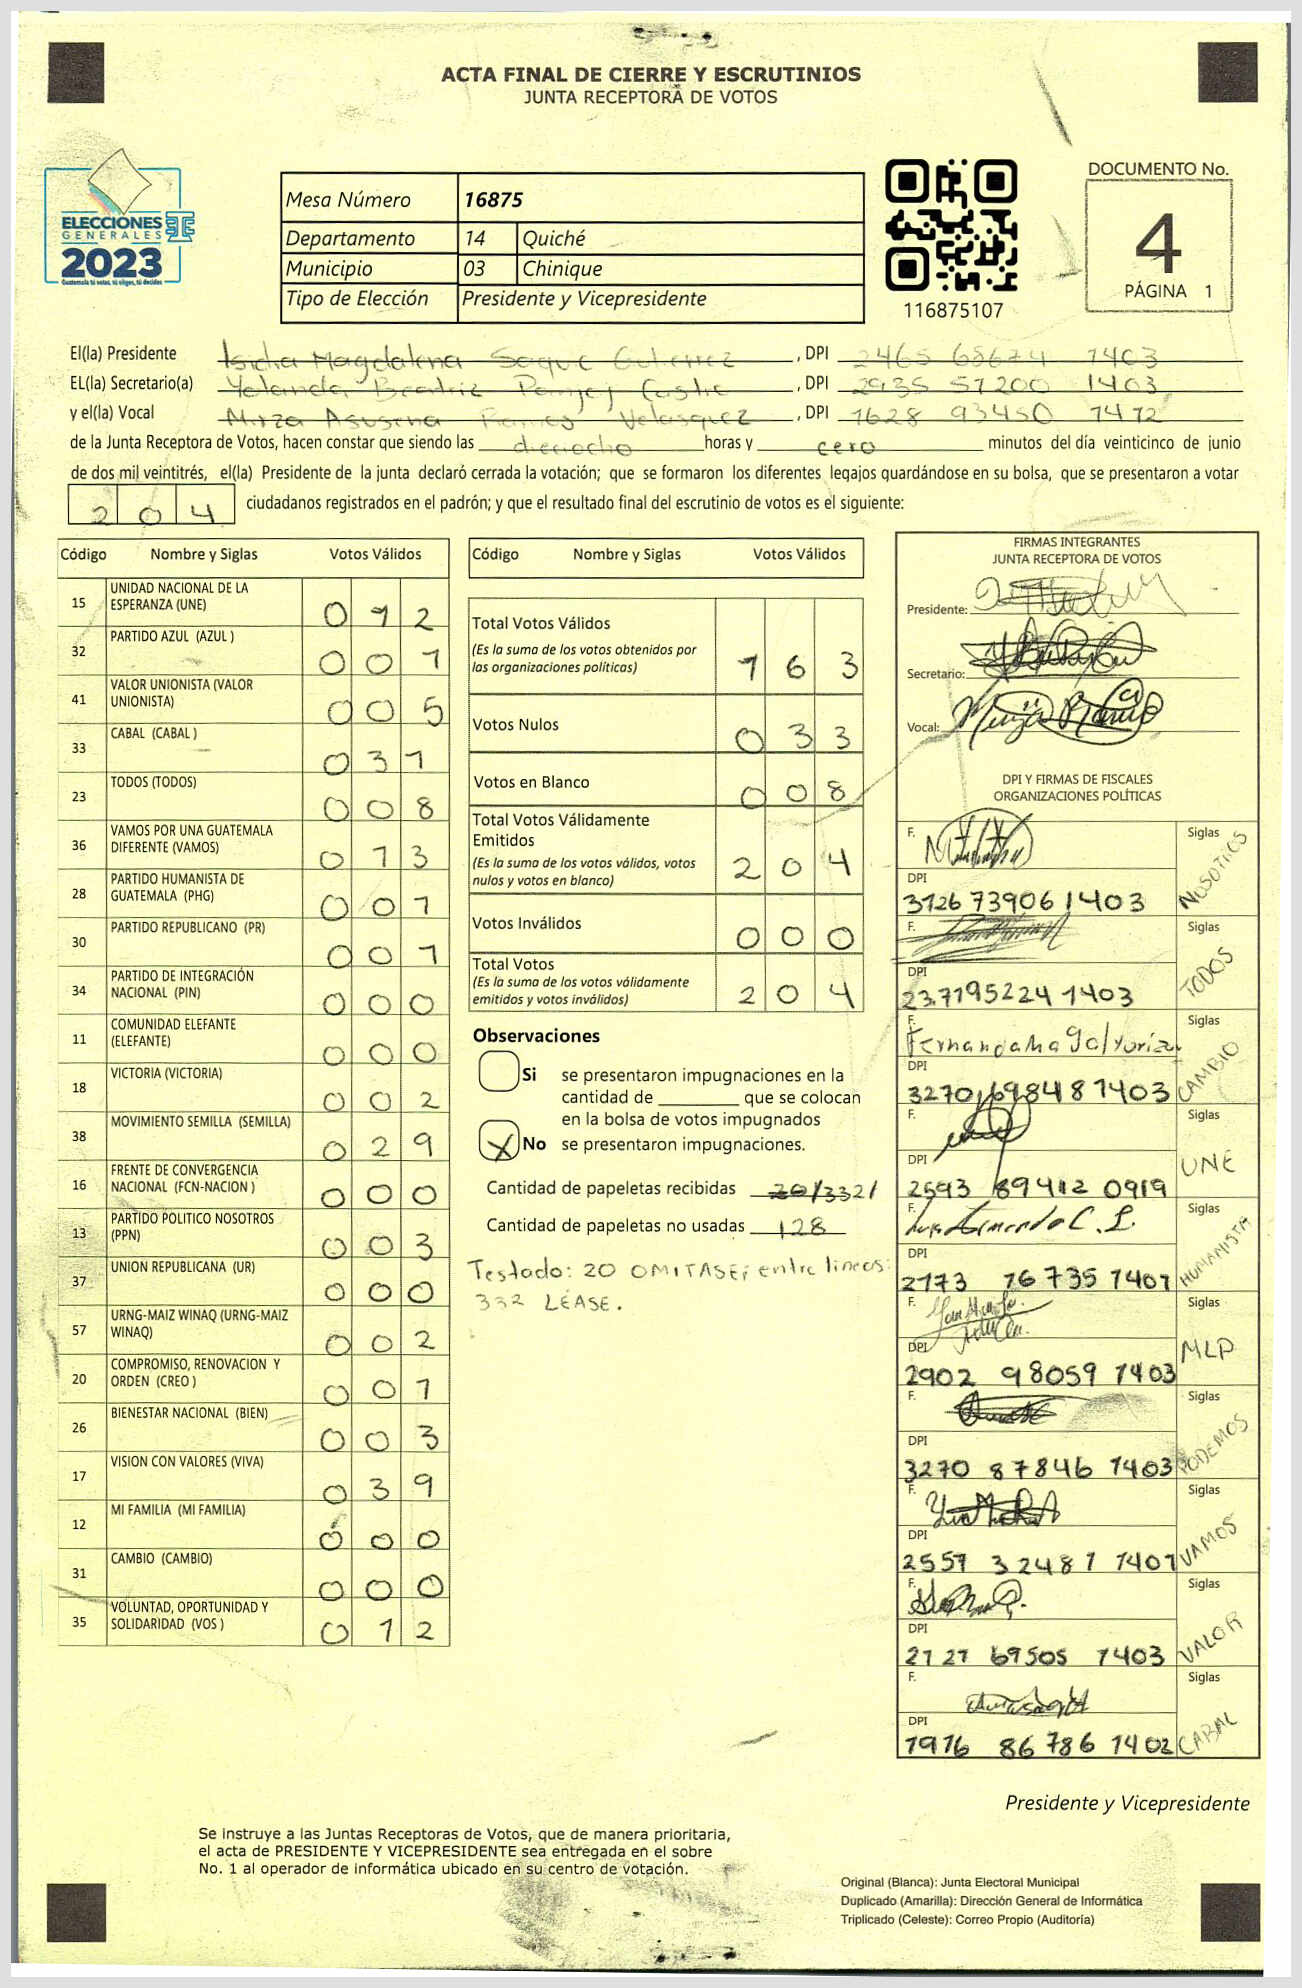 ACTA FINAL DE CIERRE Y ESCRUTINIOS
JUNTA RECEPTORA DE VOTOS
ELECCIONES
GENERALES
2023
Guatemala tú votas, tú eliges, tú decides
Mesa Número 16875
Departamento 14 Quiché
Municipio 03 Chinique
Tipo de Elección Presidente y Vicepresidente
116875107
DOCUMENTO No.
4
PÁGINA 1
El(la) Presidente Isidia Magdalena Saquic Gutierrez, DPI 2465 68674 1403
EL(la) Secretario(a) Yolanda Beatriz Castro, DPI 2935 57200 1403
y el(la) Vocal Mirza Asusena Ramos Velasquez, DPI 1628 93450 1412
de la Junta Receptora de Votos, hacen constar que siendo las dieciocho horas y cero minutos del día veinticinco de junio
de dos mil veintitrés, el(la) Presidente de la junta declaró cerrada la votación; que se formaron los diferentes legajos guardándose en su bolsa, que se presentaron a votar
204 ciudadanos registrados en el padrón; y que el resultado final del escrutinio de votos es el siguiente:
Código Nombre y Siglas Votos Válidos
15 UNIDAD NACIONAL DE LA ESPERANZA (UNE) 012
32 PARTIDO AZUL (AZUL ) 001
41 VALOR UNIONISTA (VALOR UNIONISTA) 005
33 CABAL (CABAL ) 031
23 TODOS (TODOS) 008
36 VAMOS POR UNA GUATEMALA DIFERENTE (VAMOS) 013
28 PARTIDO HUMANISTA DE GUATEMALA (PHG) 001
30 PARTIDO REPUBLICANO (PR) 001
34 PARTIDO DE INTEGRACIÓN NACIONAL (PIN) 000
11 COMUNIDAD ELEFANTE (ELEFANTE) 000
18 VICTORIA (VICTORIA) 002
38 MOVIMIENTO SEMILLA (SEMILLA) 029
16 FRENTE DE CONVERGENCIA NACIONAL (FCN-NACION ) 000
13 PARTIDO POLITICO NOSOTROS (PPN) 003
37 UNION REPUBLICANA (UR) 000
57 URNG-MAIZ WINAQ (URNG-MAIZ WINAQ) 002
20 COMPROMISO, RENOVACION Y ORDEN (CREO ) 001
26 BIENESTAR NACIONAL (BIEN) 003
17 VISION CON VALORES (VIVA) 039
12 MI FAMILIA (MI FAMILIA) 000
31 CAMBIO (CAMBIO) 000
35 VOLUNTAD, OPORTUNIDAD Y SOLIDARIDAD (VOS ) 012
Código Nombre y Siglas Votos Válidos
Total Votos Válidos 163
(Es la suma de los votos obtenidos por
las organizaciones políticas)
Votos Nulos 033
Votos en Blanco 008
Total Votos Válidamente
Emitidos 204
(Es la suma de los votos válidos, votos
nulos y votos en blanco)
Votos Inválidos 000
Total Votos 204
(Es la suma de los votos válidamente
emitidos y votos inválidos)
Observaciones
Si se presentaron impugnaciones en la
cantidad de ________ que se colocan
en la bolsa de votos impugnados
X No se presentaron impugnaciones.
Cantidad de papeletas recibidas 20/332/
Cantidad de papeletas no usadas 128
Testado: 20 OMITASE; entre lineas:
332 LÉASE.
FIRMAS INTEGRANTES
JUNTA RECEPTORA DE VOTOS
Presidente:
Secretario:
Vocal:
DPI Y FIRMAS DE FISCALES
ORGANIZACIONES POLÍTICAS
F. Siglas NOSOTROS
DPI 3726 73906 1403
F. Siglas TODOS
DPI 23.7195224 1403
F. Siglas CAMBIO
DPI 3270 69848 1403
F. Siglas UNE
DPI 2593 89412 0919
F. Siglas HUMANISTA
DPI 2173 16735 1401
F. Siglas MLP
DPI 2902 98059 1403
F. Siglas PODEMOS
DPI 3270 87846 1403
F. Siglas VAMOS
DPI 2557 32487 1401
F. Siglas VALOR
DPI 2121 69505 1403
F. Siglas CABAL
DPI 1976 86786 1402
Presidente y Vicepresidente
Se instruye a las Juntas Receptoras de Votos, que de manera prioritaria,
el acta de PRESIDENTE Y VICEPRESIDENTE sea entregada en el sobre
No. 1 al operador de informática ubicado en su centro de votación.
Original (Blanca): Junta Electoral Municipal
Duplicado (Amarilla): Dirección General de Informática
Triplicado (Celeste): Correo Propio (Auditoría)